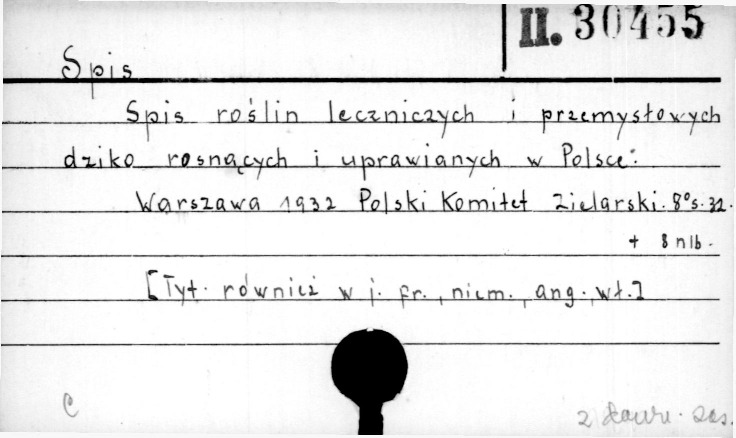 II. 30455
Spis
Spis roślin leczniczych i przemysłowych
dziko rosnących i uprawianych w Polsce.
Warszawa 1932 Polski Komitet Zielarski. 8° s. 32.
+ 8 nlb.
[Tyt. również w j. fr., niem., ang., wł.]
C
2